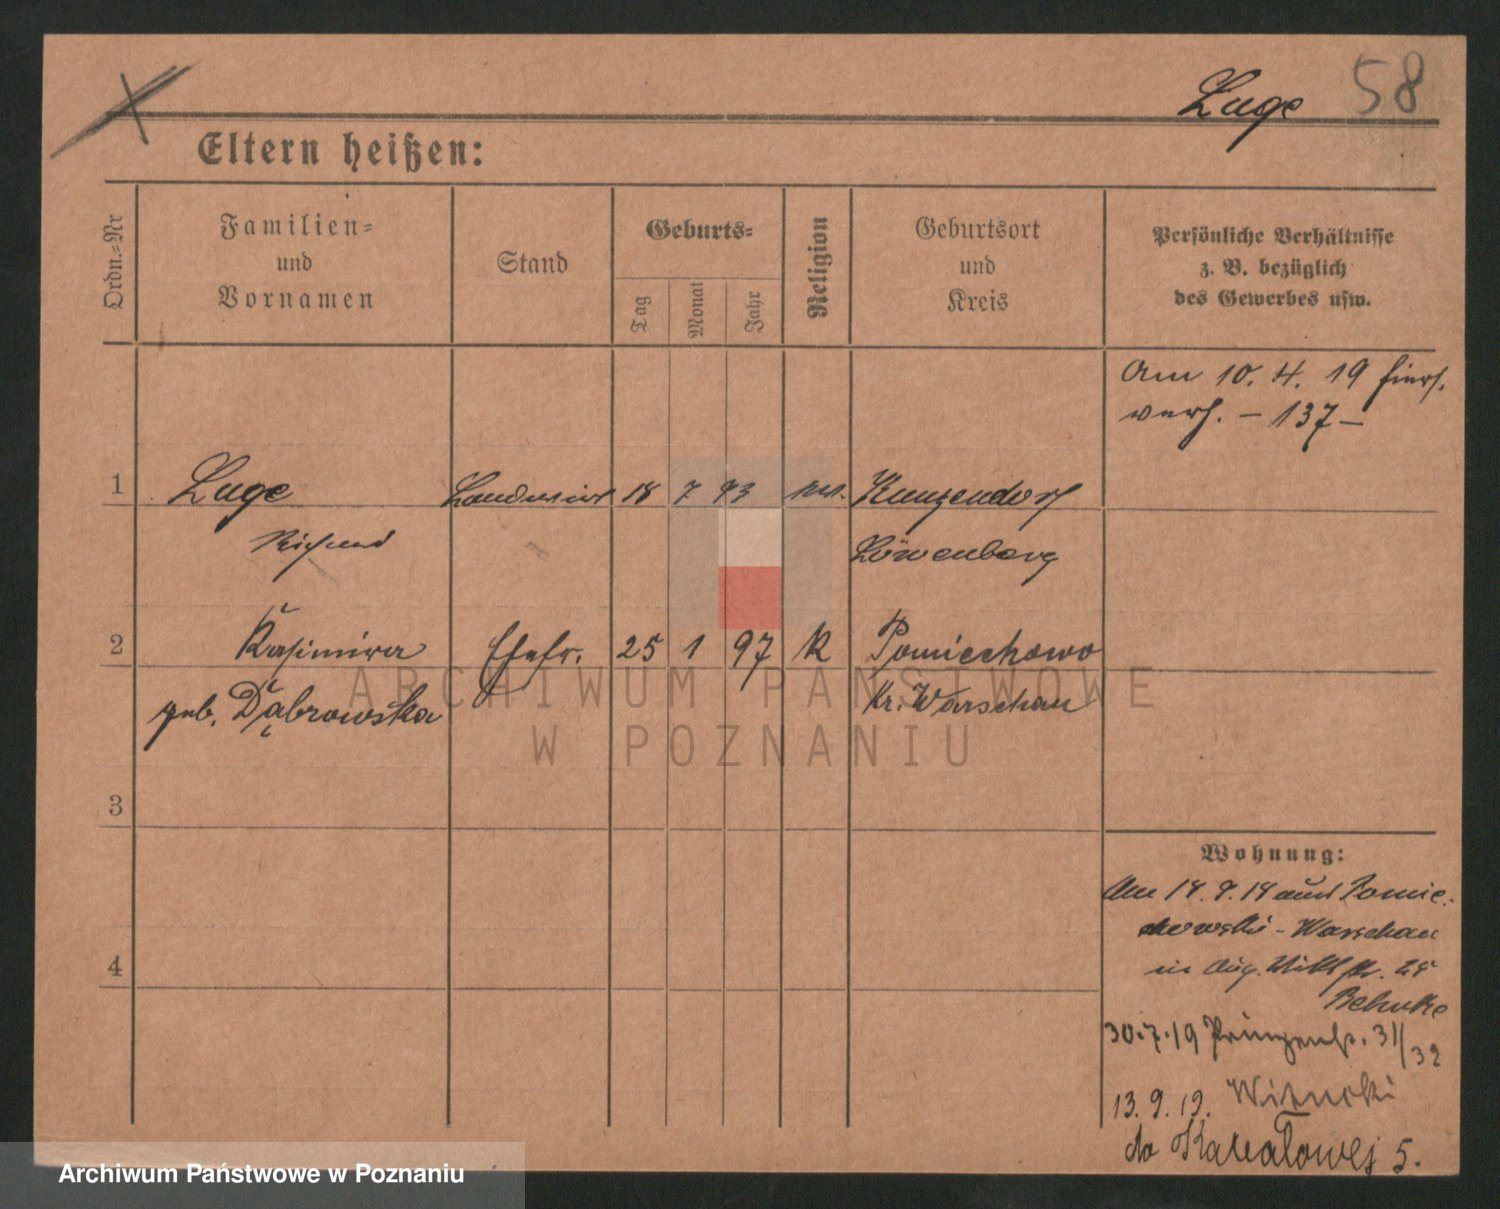 Luge 58
Eltern heißen:
Ordn.-Nr
Familien-
und
Vornamen
Stand
Geburts-
Tag
Monat
Jahr
Religion
Geburtsort
und
Kreis
Persönliche Verhältnisse
z. B. bezüglich
des Gewerbes usw.
Am 10. 4. 19 hiers.
verh. – 137 –
1 Luge Landwirt 18 7 93 Kunzendorf
Richard Löwenberg
2 Kasimira Ehefr. 25 1 97 K Pomiechowo
geb. Dąbrowska Kr. Warschau
3
4
Wohnung:
Am 18. 9. 18 aus Pomie-
chowski - Warschau
in Aug. Vikt str. 25
Behnke
30.7.19 Prinzenstr. 31/32
13. 9. 19.
do 5.
ARCHIWUM PAŃSTWOWE
W POZNANIU
Archiwum Państwowe w Poznaniu